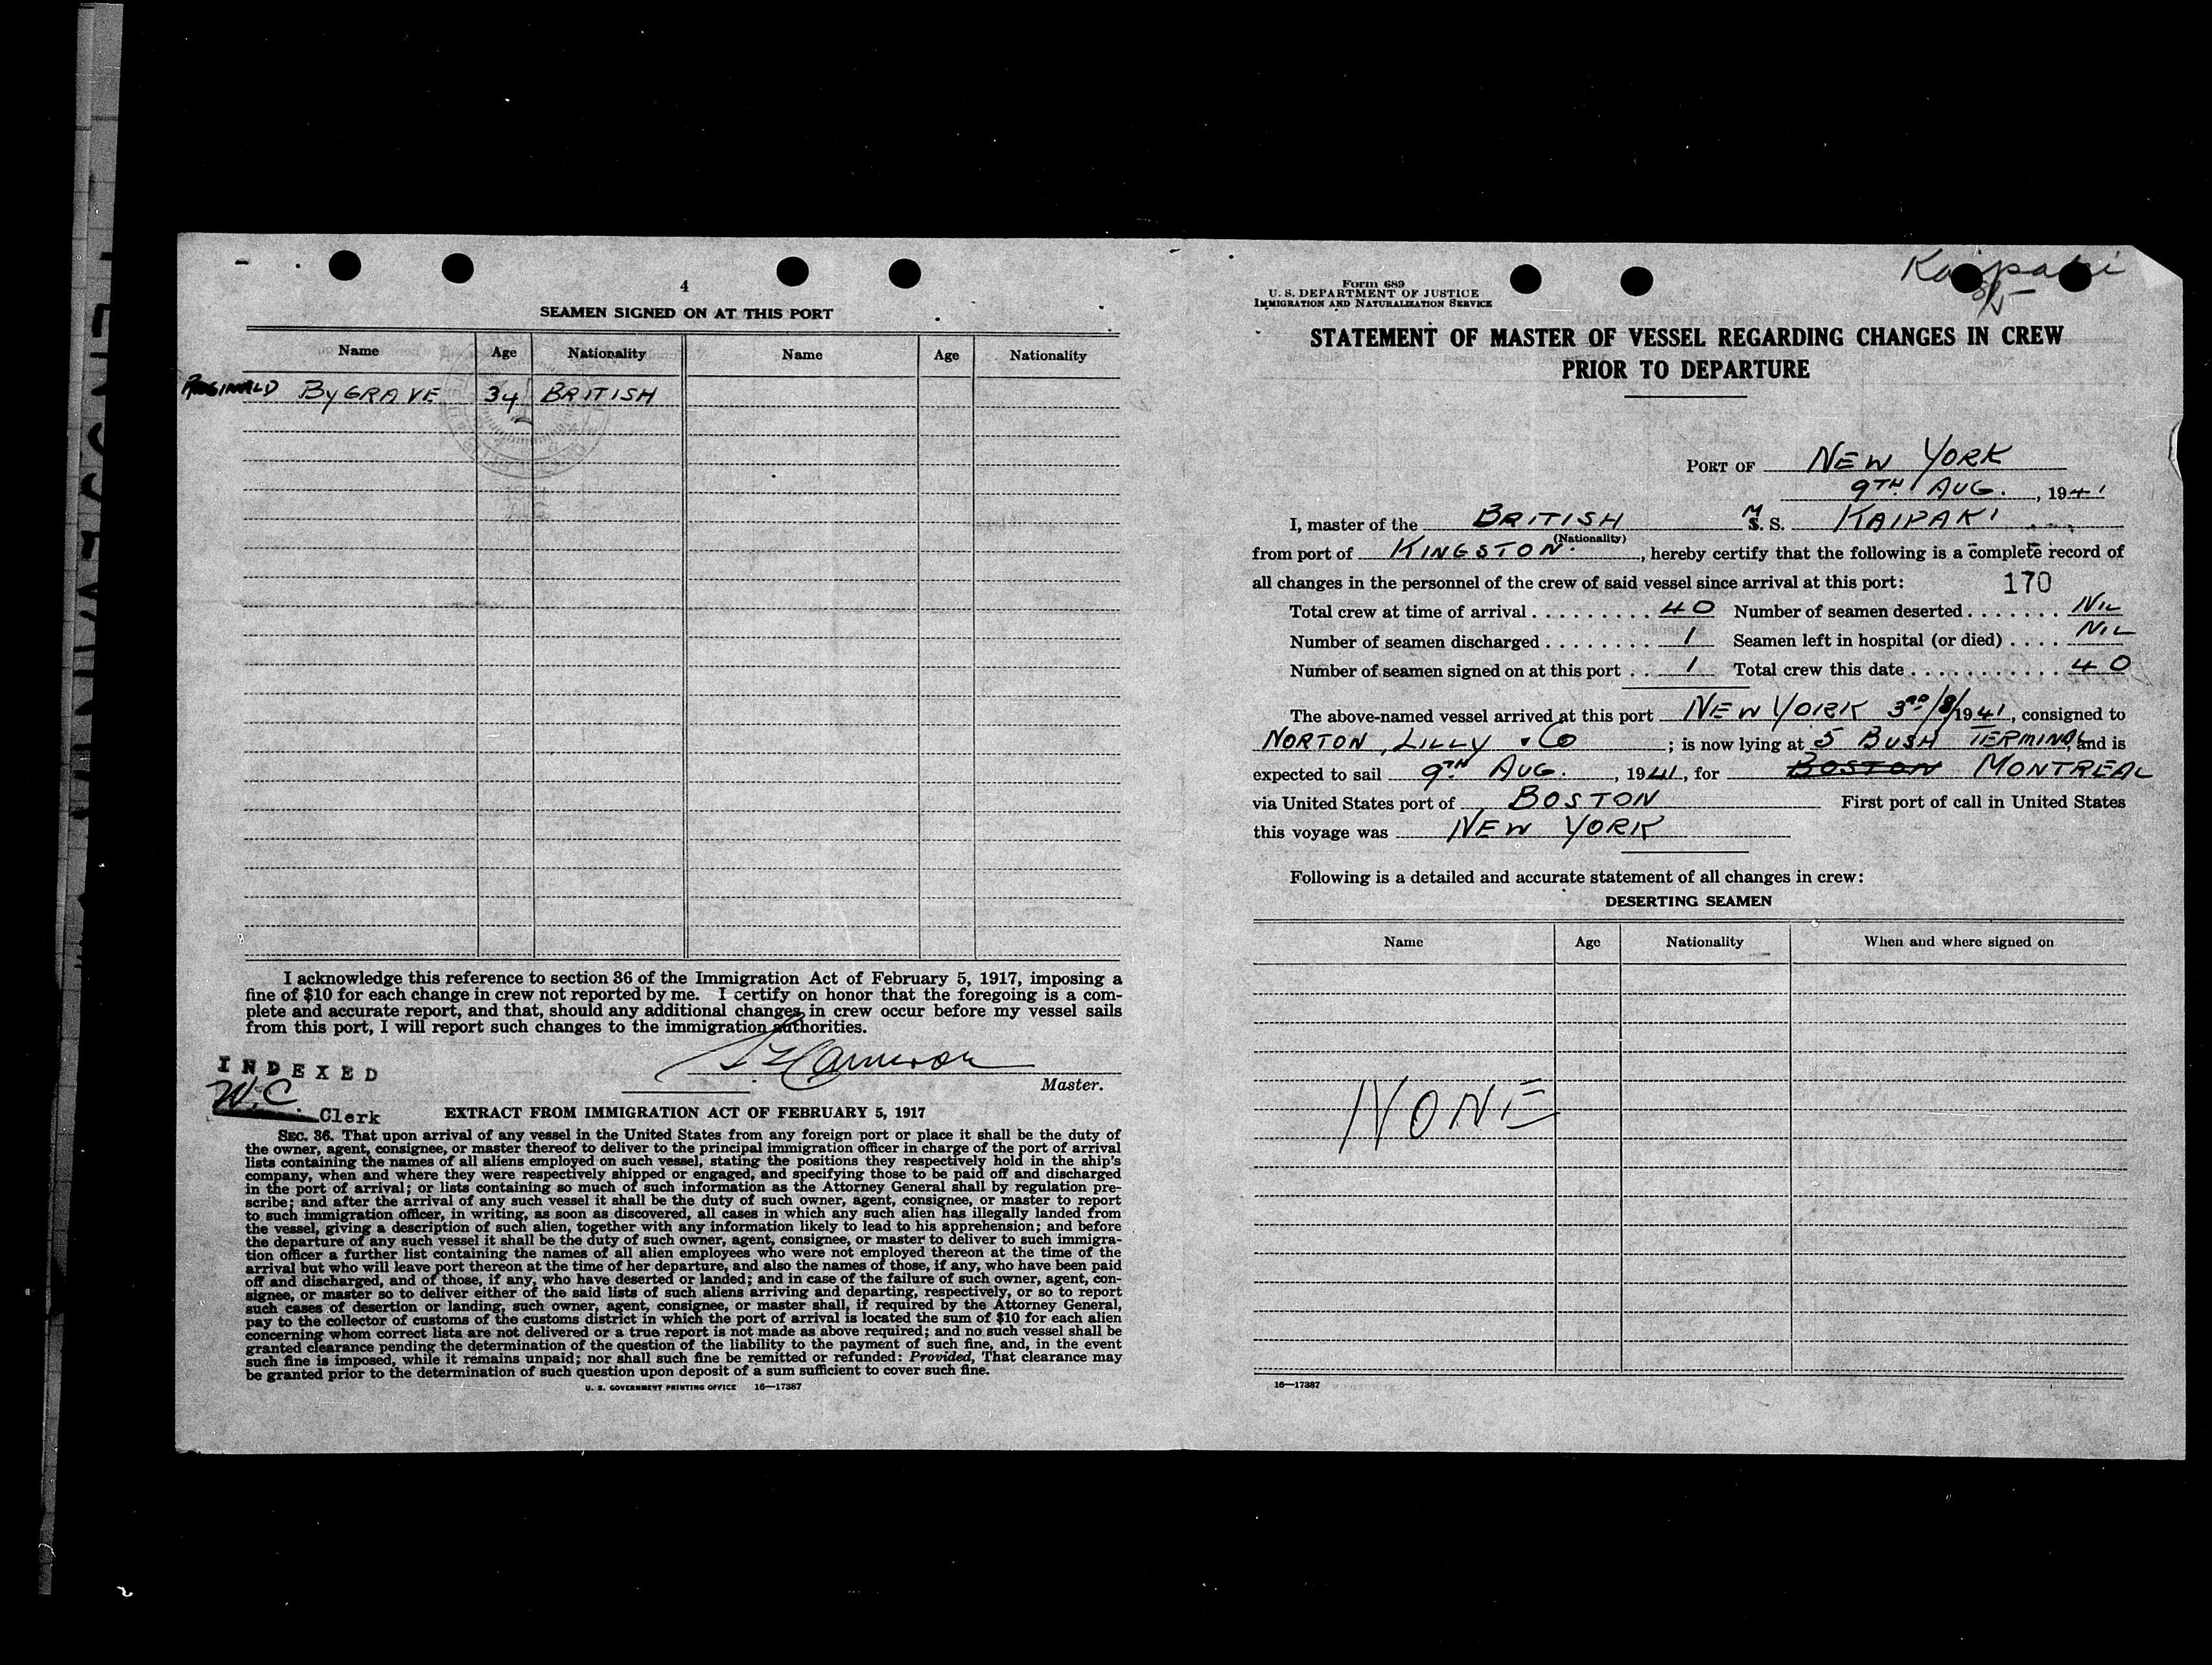 4
SEAMEN SIGNED ON AT THIS PORT
Name Age Nationality Name Age Nationality
REGINALD BYGRAVE 34 BRITISH
I acknowledge this reference to section 36 of the Immigration Act of February 5, 1917, imposing a
fine of $10 for each change in crew not reported by me. I certify on honor that the foregoing is a com-
plete and accurate report, and that, should any additional changes in crew occur before my vessel sails
from this port, I will report such changes to the immigration authorities.
Cameron
Master.
INDEXED
W.C.
Clerk
EXTRACT FROM IMMIGRATION ACT OF FEBRUARY 5, 1917
SEC. 36. That upon arrival of any vessel in the United States from any foreign port or place it shall be the duty of
the owner, agent, consignee, or master thereof to deliver to the principal immigration officer in charge of the port of arrival
lists containing the names of all aliens employed on such vessel, stating the positions they respectively hold in the ship's
company, when and where they were respectively shipped or engaged, and specifying those to be paid off and discharged
in the port of arrival; or lists containing so much of such information as the Attorney General shall by regulation pre-
scribe; and after the arrival of any such vessel it shall be the duty of such owner, agent, consignee, or master to report
to such immigration officer, in writing, as soon as discovered, all cases in which any such alien has illegally landed from
the vessel, giving a description of such alien, together with any information likely to lead to his apprehension; and before
the departure of any such vessel it shall be the duty of such owner, agent, consignee, or master to deliver to such immigra-
tion officer a further list containing the names of all alien employees who were not employed thereon at the time of the
arrival but who will leave port thereon at the time of her departure, and also the names of those, if any, who have been paid
off and discharged, and of those, if any, who have deserted or landed; and in case of the failure of such owner, agent, con-
signee, or master so to deliver either of the said lists of such aliens arriving and departing, respectively, or so to report
such cases of desertion or landing, such owner, agent, consignee, or master shall, if required by the Attorney General,
pay to the collector of customs of the customs district in which the port of arrival is located the sum of $10 for each alien
concerning whom correct lists are not delivered or a true report is not made as above required; and no such vessel shall be
granted clearance pending the determination of the question of the liability to the payment of such fine, and, in the event
such fine is imposed, while it remains unpaid; nor shall such fine be remitted or refunded: Provided, That clearance may
be granted prior to the determination of such question upon deposit of a sum sufficient to cover such fine.
U. S. GOVERNMENT PRINTING OFFICE 16—17387
Kaipaki
Form 689
U. S. DEPARTMENT OF JUSTICE
IMMIGRATION AND NATURALIZATION SERVICE
STATEMENT OF MASTER OF VESSEL REGARDING CHANGES IN CREW
PRIOR TO DEPARTURE
PORT OF NEW YORK
9TH AUG. , 1941
I, master of the BRITISH M. S. KAIPAKI
(Nationality)
from port of KINGSTON. , hereby certify that the following is a complete record of
all changes in the personnel of the crew of said vessel since arrival at this port: 170
Total crew at time of arrival . . . . . . . . . 40 Number of seamen deserted . . . . . . . NIL
Number of seamen discharged . . . . . . . . 1 Seamen left in hospital (or died) . . . . NIL
Number of seamen signed on at this port . . 1 Total crew this date . . . . . . . . . . . 40
The above-named vessel arrived at this port NEW YORK 3RD/8/1941, consigned to
NORTON, LILLY & CO ; is now lying at 5 BUSH TERMINAL, and is
expected to sail 9TH AUG. , 1941, for BOSTON MONTREAL
via United States port of BOSTON First port of call in United States
this voyage was NEW YORK
Following is a detailed and accurate statement of all changes in crew:
DESERTING SEAMEN
Name Age Nationality When and where signed on
NONE
16—17387